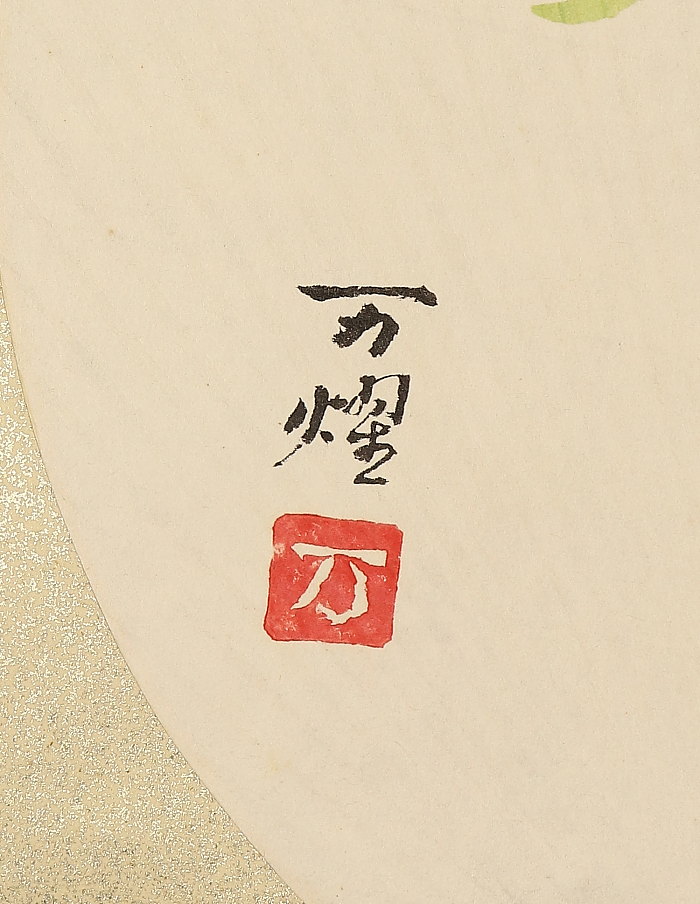 万
燿
万